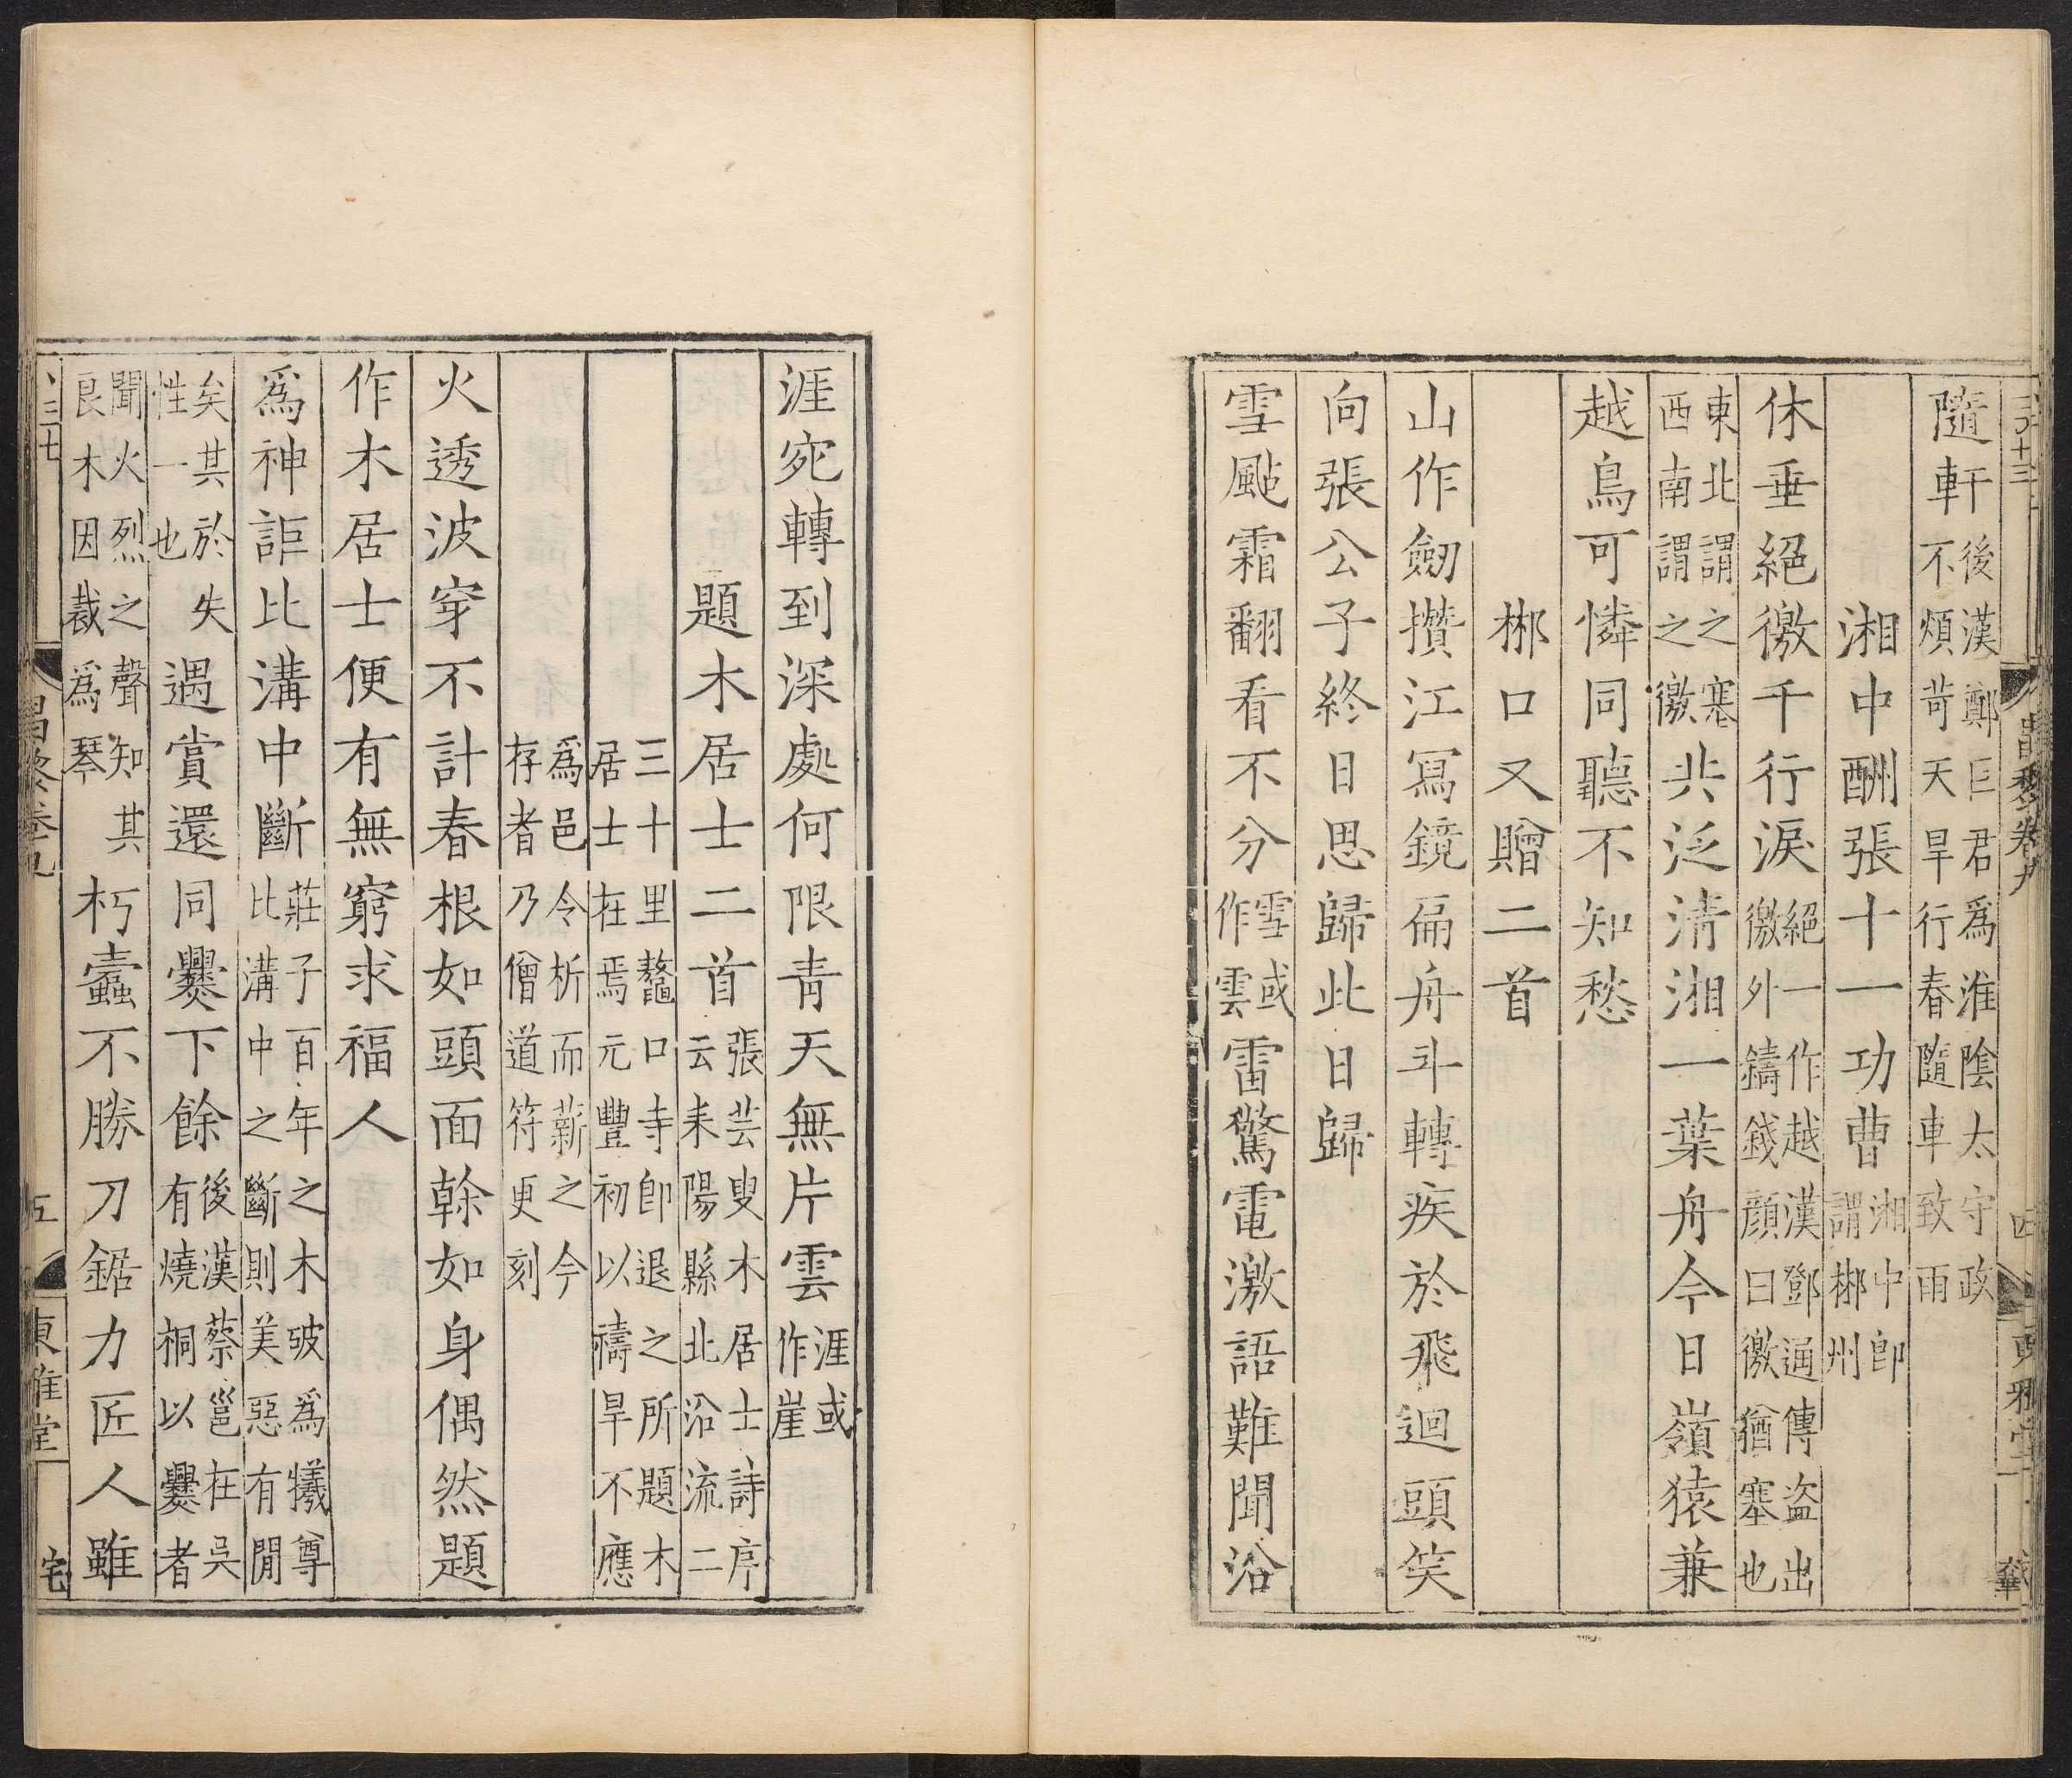 昌黎卷九 四 東雅堂
隨軒後漢鄭巨君爲淮陰太守政不煩苛天旱行春隨車致雨
湘中酬張十一功曹湘中卽謂郴州
休垂絕徼千行淚絕一作越漢鄧通傳盜出徼外鑄錢顔曰徼猶塞也
東北謂之塞西南謂之徼共泛淸湘一葉舟今日嶺猿兼
越鳥可憐同聽不知愁
郴口又贈二首
山作劒攢江冩鏡扁舟斗轉疾於飛迴頭笑
向張公子終日思歸此日歸
雪颭霜翻看不分雪或作雲雷驚電激語難聞沿
涯宛轉到深處何限靑天無片雲涯或作崖
題木居士二首張芸叟木居士詩序云耒陽縣北沿流二
三十里鼇口寺卽退之所題木居士在焉元豐初以禱旱不應
爲邑令析而薪之今存者乃僧道符更刻
火透波穿不計春根如頭面幹如身偶然題
作木居士便有無窮求福人
爲神詎比溝中斷莊子百年之木破爲犧尊比溝中之斷則美惡有閒
矣其於失性一也遇賞還同爨下餘後漢蔡邕在吳有燒桐以爨者
聞火烈之聲知其良木因裁爲琴朽蠹不勝刀鋸力匠人雖
昌黎卷九 五 東雅堂